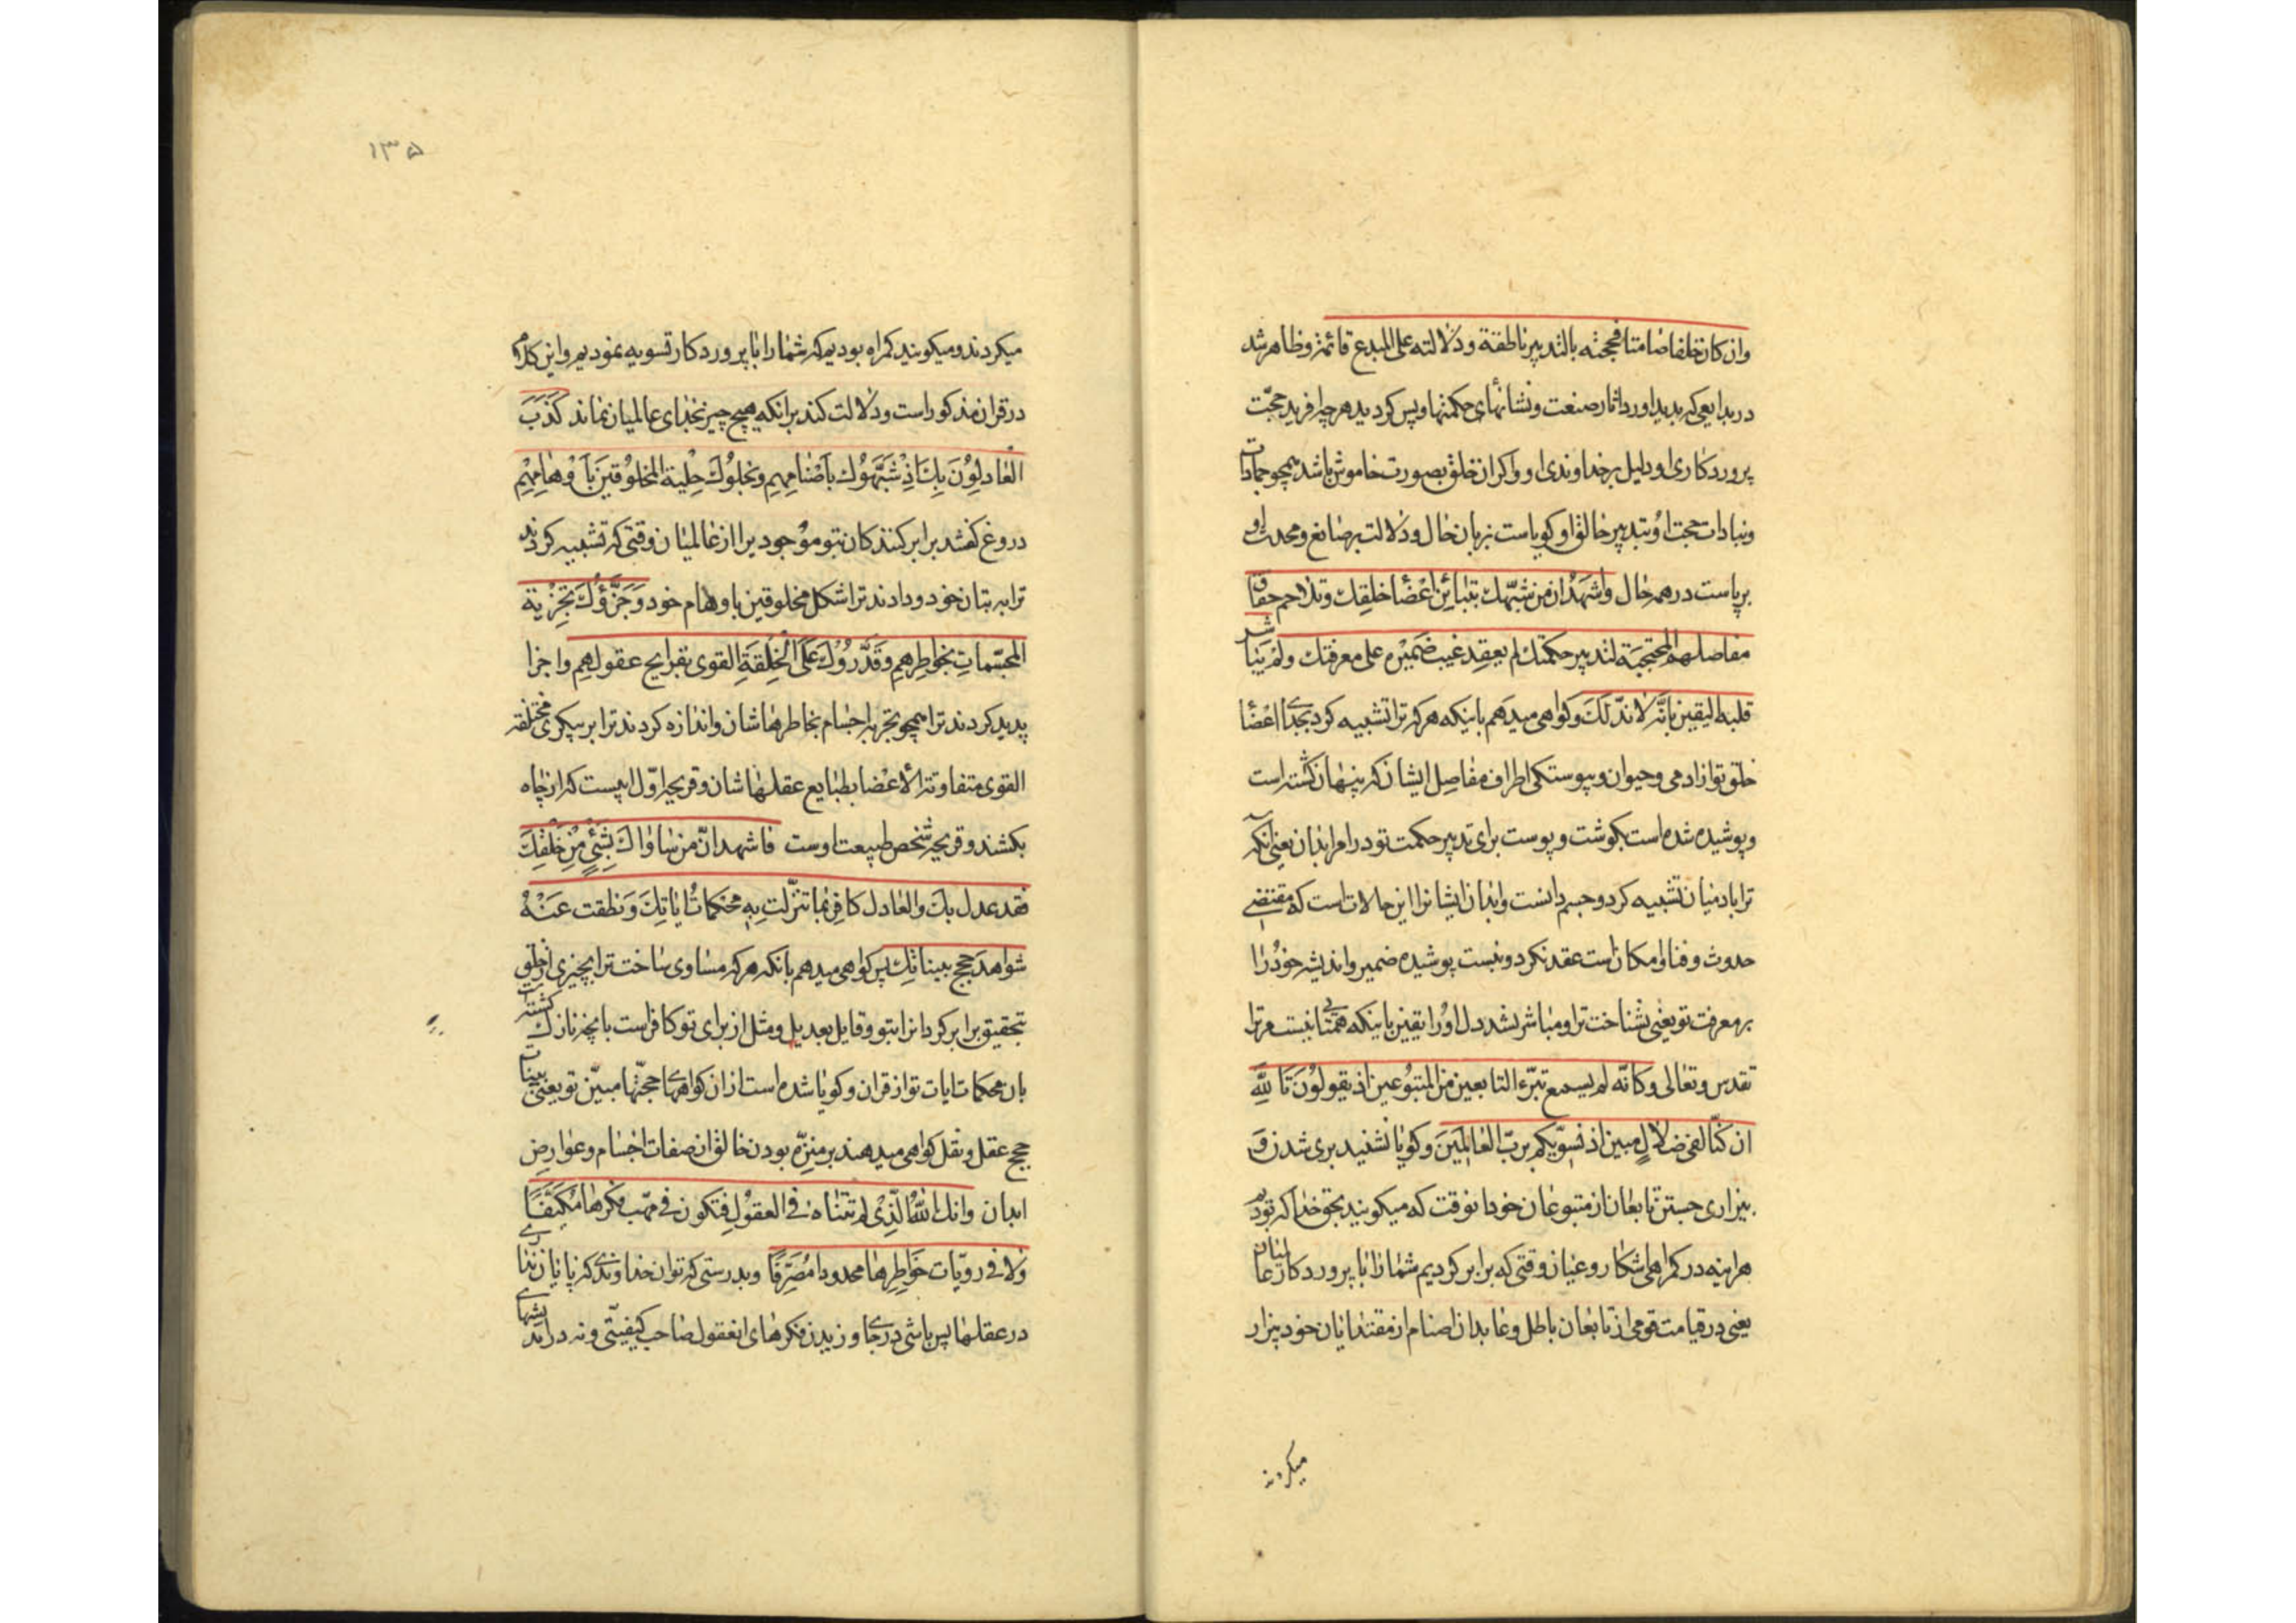 وان کان خلفا صامتا فحجته بالتدبیر ناطقة ودلالته علی المبدع قائمة وظاهر شد
در بدایعی که پدید اورد اثار صنعت ونشانهای حکمتها وپس کردید هر چه افرید حجّت
پروردکاری او ودلیل بر خداوندی او واکر ان خلق بصورت خاموش باشد همچو جمادات
ونباتات حجت او بتدبیر خالق او کویاست بزبان حال ودلالت بر صانع ومحدث او
برپاست در همه حال واشهد ان من شبّهك بتبائن اعضا خلقك وتلاحم حقاق
مفاصلهم المحتجبة لتدبیر حکمتك لم یعقد غیب ضمیره علی معرفتك ولم یباشر
قلبه الیقین بانّه لا ندّ لك وکواهی میدهم باینکه هر که ترا تشبیه کرد بجدا اعضا
خلق تو از ادمی وحیوان وپیوستکی اطراف مفاصل ایشان که پنهان کشته است
وپوشیده شده است بکوشت وپوست برای تدبیر حکمت تو در امر ابدان یعنی انکه
ترا بادمیان تشبیه کرد وجسم دانست وابدان ایشانرا این حالات است که مقتضی
حدوث وفنا وامکان است عقد نکرد ونبست پوشیده ضمیر واندیشه خود را
بر معرفت تو یعنی نشناخت ترا ومباشر نشد دل او را یقین باینکه همتائی نیست مر ترا
تقدس وتعالی وکانّه لم یسمع تبرّء التابعین من المتبوعین اذ یقولون تاللّه
ان کنّا لفی ضلال مبین اذ نسوّیکم بربّ العالمین وکویا نشنید بری شدن و
بیزاری جستن تابعان از متبوعان خود انوقت که میکویند بحق خدا که بودیم
هراینه در کمراهی اشکار وعیان وقتی که برابر کردیم شما را با پروردکار عالمیان
یعنی در قیامت قومی از تابعان باطل وعابدان اصنام از مقتدایان خود بیزار
میکردند
۱۳۵
میکردند ومیکویند کمراه بودیم که شما را با پروردکار تسویه نمودیم واین کلام
در قران مذکور است ودلالت کند بر انکه هیچ چیز بخدای عالمیان نماند کذب
العادلون بك اذ شبّهوك باصنامهم ونحلوك حلیة المخلوقین باوهامهم
دروغ کفتند برابر کنندکان بتو موجودیرا از عالمیان وقتی که تشبیه کردند
ترا به بتان خود ودادند ترا شکل مخلوقین باوهام خود وجزّؤك تجزیة
المجسّمات بخواطرهم وقدّروك علی الخلقة المختلفة القوی بقرایح عقولهم واجزا
پدید کردند ترا همچو تجزیه اجسام بخاطرهاشان واندازه کردند ترا بر پیکری مختلفه
القوی متفاوتة الاعضا بطبایع عقلهاشان وقریحه اوّل ابیست که از چاه
بکشند وقریحه شخص طبیعت اوست فاشهد انّ من ساواك بشئ من خلقك
فقد عدل بك والعادل کافر بما تنزّلت به محکمات ایاتك ونطقت عنه
شواهد حجج بیناتك پس کواهی میدهم بانکه هر که مساوی ساخت ترا بچیزی از خلق
بتحقیق برابر کرد انرا بتو وقایل بعدیل ومثل از برای تو کافر است بانچه نازل کشته است
بان محکمات ایات تو از قران وکویا شده است از ان کواهیهای حجّتها مبیّن تو یعنی بینات
حجج عقل ونقل کواهی میدهند بر منزّه بودن خالق از صفات اجسام وعوارض
ابدان وانك انت اللّه الّذی لم تتناه فی العقول فتکون فی مهبّ فکرها مکیّفا
ولا فی رویّات خواطرها محدودا مصرّفا وبدرستی که تو ان خداوندی که پایان نداری
در عقلها پس باشی در جای وزیدن فکرهای انعقول صاحب کیفیتی ونه در اندیشهای